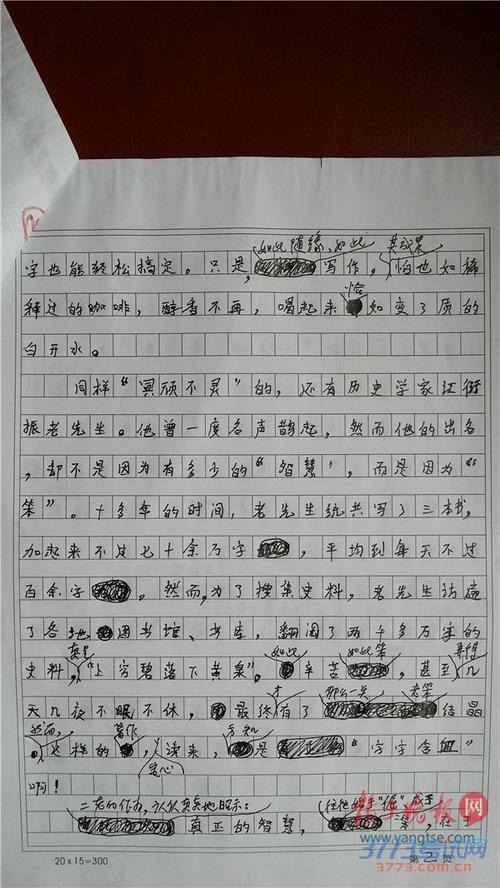 如此随缘,如此 其成果
字也能轻松搞定。只是, 写作,怕也如稀
释过的咖啡,醇香不再,喝起来恰如变了质的
白开水。
同样“冥顽不灵”的,还有历史学家江衍
振老先生。他曾一度名声鹊起,然而他的出名
,却不是因为有多少的“智慧”,而是因为“
笨”。十多年的时间,老先生统共写了三本书,
加起来不过七十余万字 ,平均到每天不过
百余字 。然而,为了搜集史料,老先生访遍
了各地图书馆、书库,翻阅了两千多万字的
史料,真是“上穷碧落下黄泉”。如此辛苦 ,甚至几
天几夜不眠不休, 才最终有了那么一点 结晶
然而,这样的著作,人读来,方知是 “字字含血”
安心
啊!
二老的作为,
真正的智慧,往往始于“倔” 成于
笨,在于
扬子晚报网
www.yangtse.com
3773考试网
3773.com.cn
20×15=300
第2页